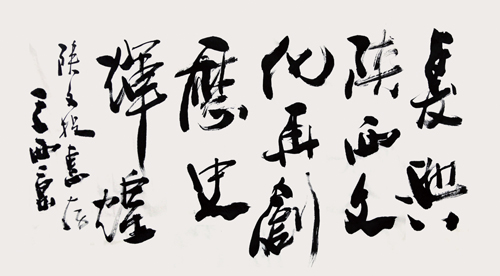 复興
陕西文
化再創
歷史
輝耀
陕文投惠存
王西京